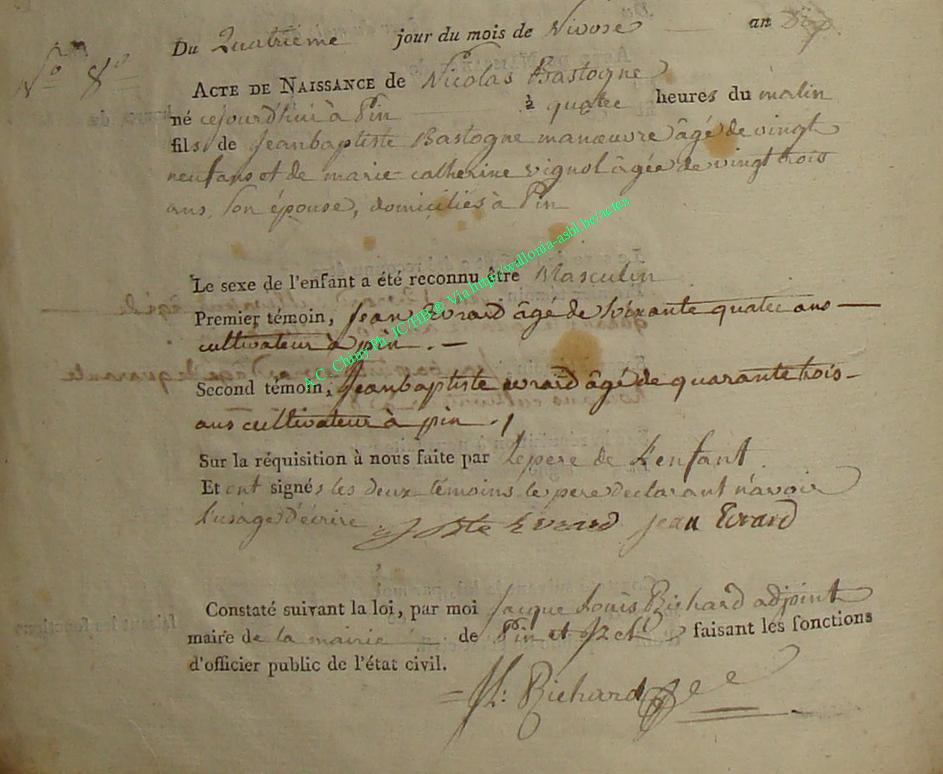 Du Quatrieme jour du mois de Nivose an
N.° 8.°
ACTE DE NAISSANCE de Nicolas Bastogne
né cejourd'hui à Pin à quatre heures du matin
fils de jeanbaptiste Bastogne manœuvre âgé de vingt
neuf ans et de marie catherine vignol âgée de vingt trois
ans, son épouse, domiciliés à Pin
Le sexe de l'enfant a été reconnu être Masculin
Premier témoin, Jean Evrard âgé de soixante quatre ans —
cultivateur à pin . —
Second témoin, Jeanbaptiste evrard âgé de quarante trois -
ans cultivateur à pin ./
Sur la réquisition à nous faite par le pere de L'enfant
Et ont signés les deux témoins, le pere declarant n'avoir
l'usage d'écrire. JBte Evrard jean Evrard
Constaté suivant la loi, par moi Jacque Louis Richard adjoint
maire de la mairie de Pin et faisant les fonctions
d'officier public de l'état civil.
JL: Richard
A.C. Chiny Ph. JC HBE@ Via http//wallonia-asbl.be/actes